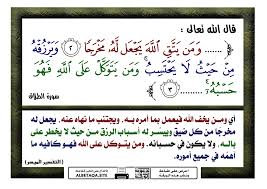 قال الله تعالى :
...... وَمَن يَتَّقِ ٱللَّهَ يَجْعَل لَّهُۥ مَخْرَجًا ٢ وَيَرْزُقْهُ
مِنْ حَيْثُ لَا يَحْتَسِبُ ۚ وَمَن يَتَوَكَّلْ عَلَى ٱللَّهِ فَهُوَ
حَسْبُهُۥٓ ۚ ...... ٣
سورة الطلاق
أي ومن يخف الله فيعمل بما أمره به، ويجتنب ما نهاه عنه، يجعل له
مخرجا من كل ضيق وييسر له أسباب الرزق من حيث لا يخطر على
باله، ولا يكون في حسبانه. ومن يتوكل على الله فهو كافيه ما
أهمه في جميع أموره.
(التفسير الميسر)
ALBETAQA.SITE